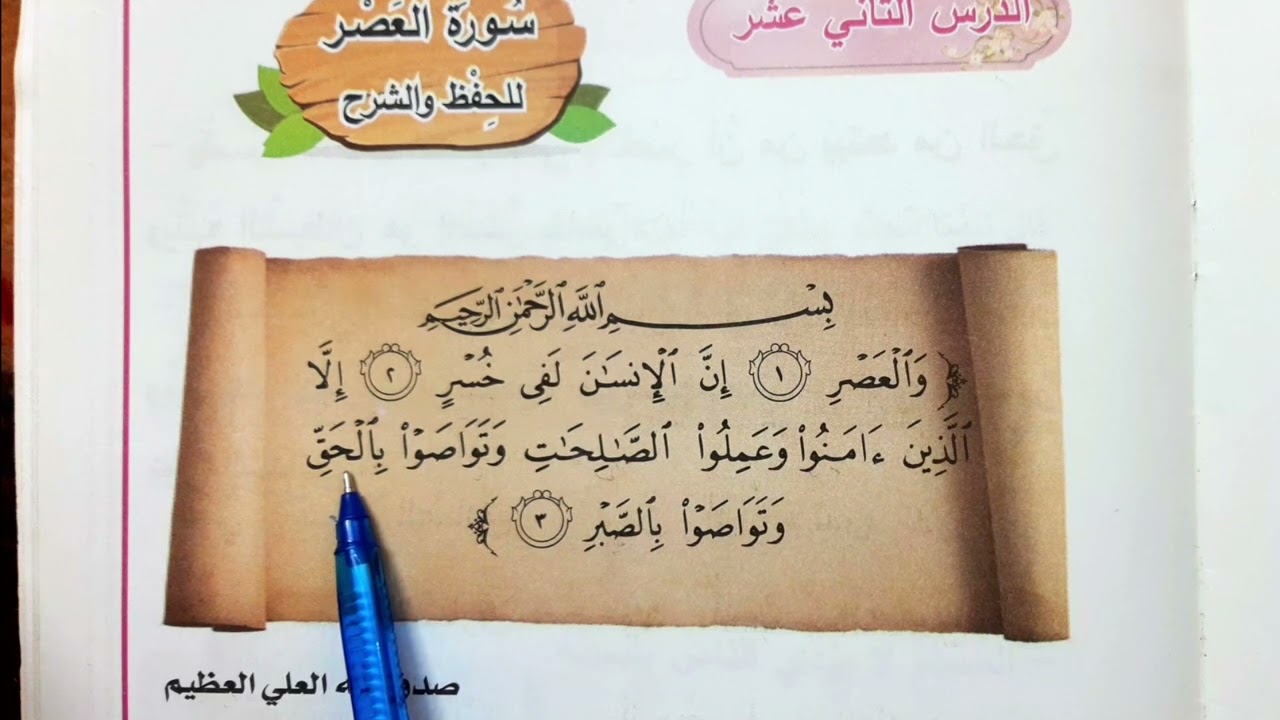 الدرس الثاني عشر
سُورَة العَصْر
للحِفْظ والشرح
بِسْمِ ٱللَّهِ ٱلرَّحْمَٰنِ ٱلرَّحِيمِ
﴿ وَٱلْعَصْرِ ١ إِنَّ ٱلْإِنسَٰنَ لَفِى خُسْرٍ ٢ إِلَّا
ٱلَّذِينَ ءَامَنُوا۟ وَعَمِلُوا۟ ٱلصَّٰلِحَٰتِ وَتَوَاصَوْا۟ بِٱلْحَقِّ
وَتَوَاصَوْا۟ بِٱلصَّبْرِ ٣ ﴾
العلي العظيم